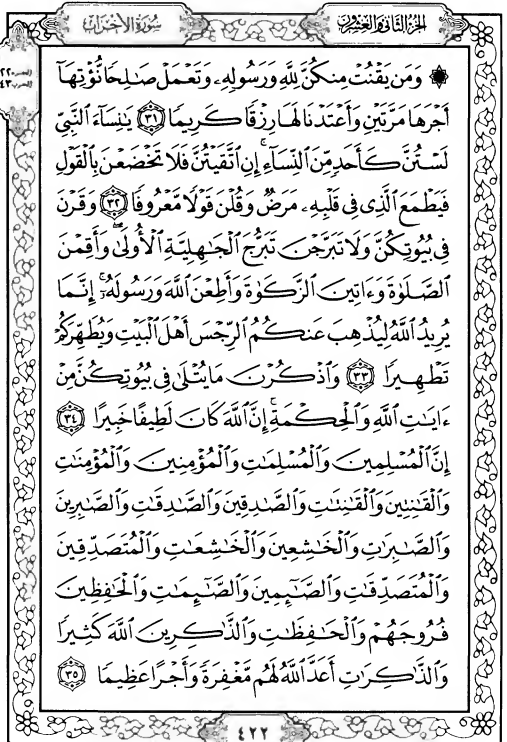 سُورَةُ الْأَحْزَابِ
الجُزْءُ الثَّانِي وَالعِشْرُونَ
۞ وَمَن يَقْنُتْ مِنكُنَّ لِلَّهِ وَرَسُولِهِۦ وَتَعْمَلْ صَٰلِحًا نُّؤْتِهَآ
أَجْرَهَا مَرَّتَيْنِ وَأَعْتَدْنَا لَهَا رِزْقًا كَرِيمًا ٣١ يَٰنِسَآءَ ٱلنَّبِيِّ
لَسْتُنَّ كَأَحَدٍ مِّنَ ٱلنِّسَآءِ ۚ إِنِ ٱتَّقَيْتُنَّ فَلَا تَخْضَعْنَ بِٱلْقَوْلِ
فَيَطْمَعَ ٱلَّذِى فِى قَلْبِهِۦ مَرَضٌ وَقُلْنَ قَوْلًا مَّعْرُوفًا ٣٢ وَقَرْنَ
فِى بُيُوتِكُنَّ وَلَا تَبَرَّجْنَ تَبَرُّجَ ٱلْجَٰهِلِيَّةِ ٱلْأُولَىٰ ۖ وَأَقِمْنَ
ٱلصَّلَوٰةَ وَءَاتِينَ ٱلزَّكَوٰةَ وَأَطِعْنَ ٱللَّهَ وَرَسُولَهُۥٓ ۚ إِنَّمَا
يُرِيدُ ٱللَّهُ لِيُذْهِبَ عَنكُمُ ٱلرِّجْسَ أَهْلَ ٱلْبَيْتِ وَيُطَهِّرَكُمْ
تَطْهِيرًا ٣٣ وَٱذْكُرْنَ مَا يُتْلَىٰ فِى بُيُوتِكُنَّ مِنْ
ءَايَٰتِ ٱللَّهِ وَٱلْحِكْمَةِ ۚ إِنَّ ٱللَّهَ كَانَ لَطِيفًا خَبِيرًا ٣٤
إِنَّ ٱلْمُسْلِمِينَ وَٱلْمُسْلِمَٰتِ وَٱلْمُؤْمِنِينَ وَٱلْمُؤْمِنَٰتِ
وَٱلْقَٰنِتِينَ وَٱلْقَٰنِتَٰتِ وَٱلصَّٰدِقِينَ وَٱلصَّٰدِقَٰتِ وَٱلصَّٰبِرِينَ
وَٱلصَّٰبِرَٰتِ وَٱلْخَٰشِعِينَ وَٱلْخَٰشِعَٰتِ وَٱلْمُتَصَدِّقِينَ
وَٱلْمُتَصَدِّقَٰتِ وَٱلصَّٰٓئِمِينَ وَٱلصَّٰٓئِمَٰتِ وَٱلْحَٰفِظِينَ
فُرُوجَهُمْ وَٱلْحَٰفِظَٰتِ وَٱلذَّٰكِرِينَ ٱللَّهَ كَثِيرًا
وَٱلذَّٰكِرَٰتِ أَعَدَّ ٱللَّهُ لَهُم مَّغْفِرَةً وَأَجْرًا عَظِيمًا ٣٥
٤٢٢